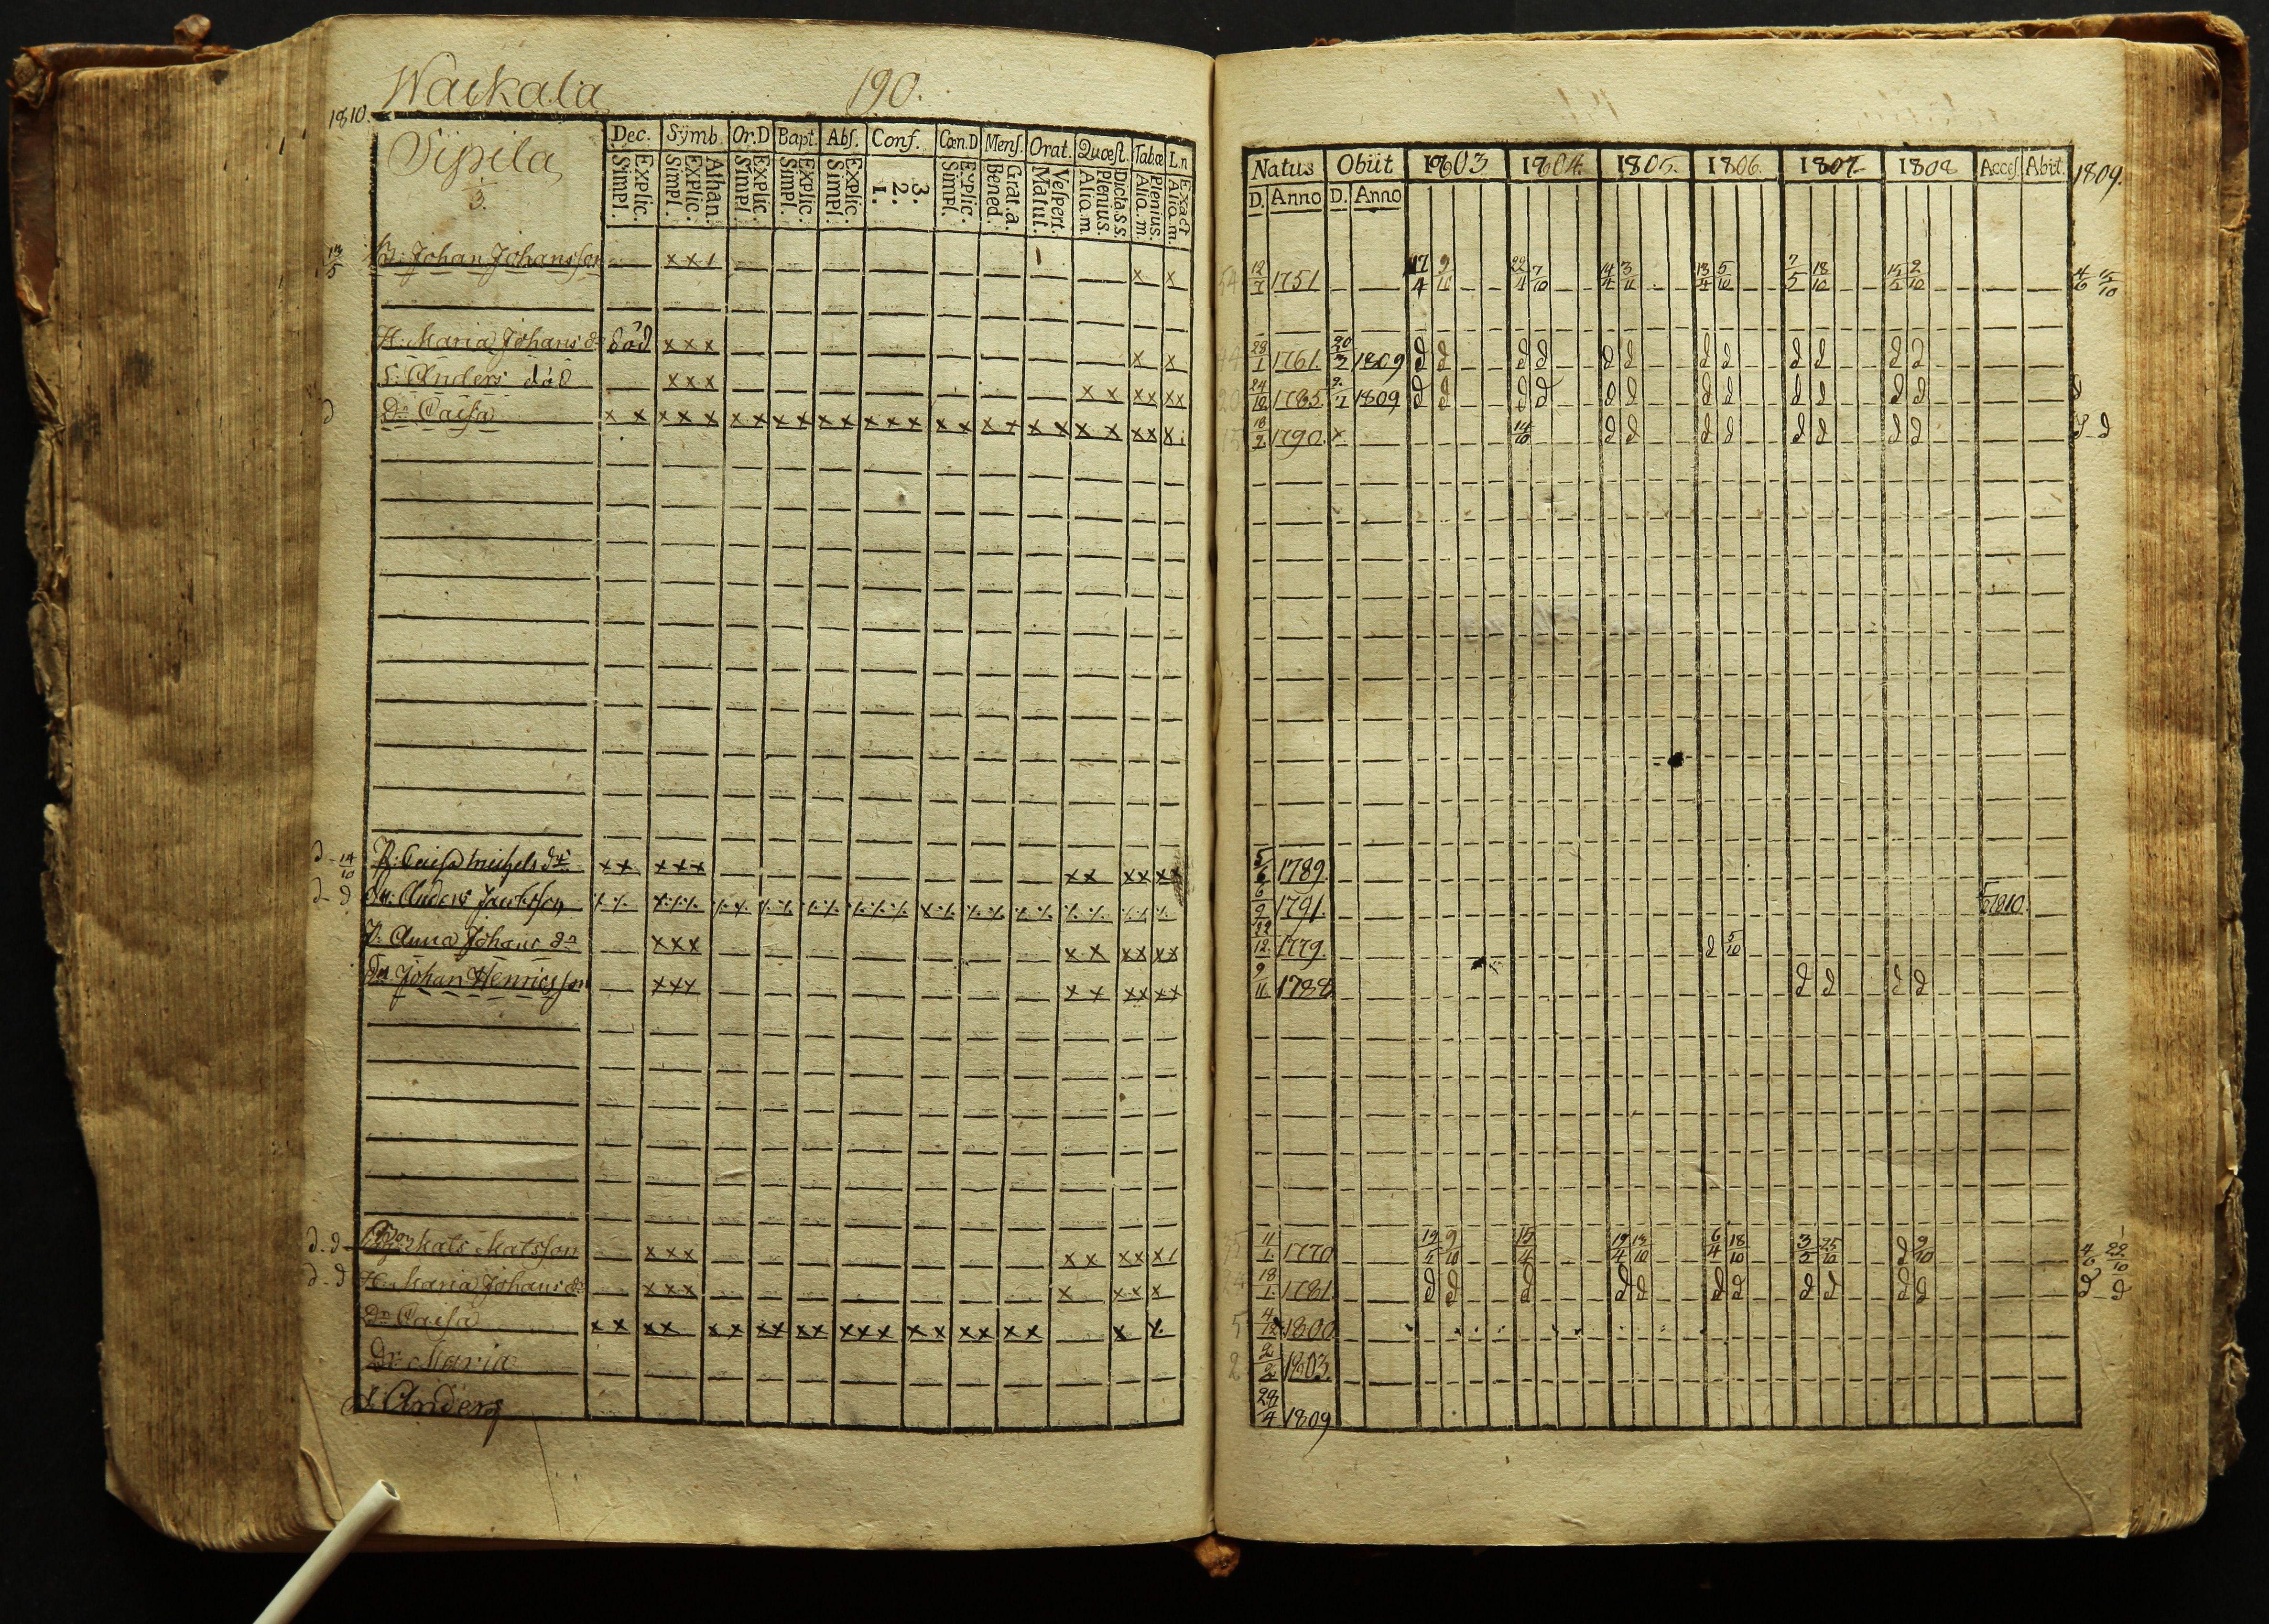 Wackala 190.
1810.
Sipila
3.
Dec. Symb. Or.D Bapt. Abs. Conf. Cœn.D Mens. Orat. Quæst. Tabœ L.n
Explic. Simpl. Athan. Explic. Simpl. Explic. Simpl. Explic. Simpl. Explic. Simpl. 3. 2. 1. Explic. Simpl. Grat.a. Bened. Vespert. Matut. Dicta.s.s. Plenius. Alio.m. Plenius. Alia.m. Exact Alio.m.
Natus Obiit 1803 1804. 1805. 1806. 1807 1808 Acces. Abiit. 1809.
D. Anno D. Anno
13/5 B: Johan Johansson x x 1 x x 12/7 1751 17/4 9/10 22/4 7/10 14/4 3/11 13/4 5/10 7/5 18/10 15/5 2/10 4/6 15/10
H. Maria Johans dr död x x x x x 28/1 1761 20/3 1809 d d d d d d d d d d d d
S: Anders död x x x x x x x x x 24/10 1785 1809 d d d d d d d d d d d d d
d Dr Caisa x x x x x x x x x x x x x x x x x x x x x x x x x x x 1790. x 14/10 d d d d d d d d d d
d - 14/10 P: Caisa Michels dr x x x x x x x x x x x 5/6 1789.
d - d Dr: Anders Jacobsson 6/9 1791. 1810.
P: Anna Johans dr x x x x x x x x x 22/12 1779. d 5/10
Dr Johan Henricsson x x x x x x x x x 9/11 1788 d d d d
d - d Mats Matsson x x x x x x x x 1 11/1 1770 9/10 15/4 6/4 18/10 3/5 25/10 d 9/10 4/6 22/10
d - d H: Maria Johans dr x x x x x x x 18/1 1781. d d d d d d d d d d d d - d
Dr Caisa x x x x x x x x x x x x x x x x x x x x 4/12 1800
Dr Maria 2/2 1803.
S: Anders 28/4 1809